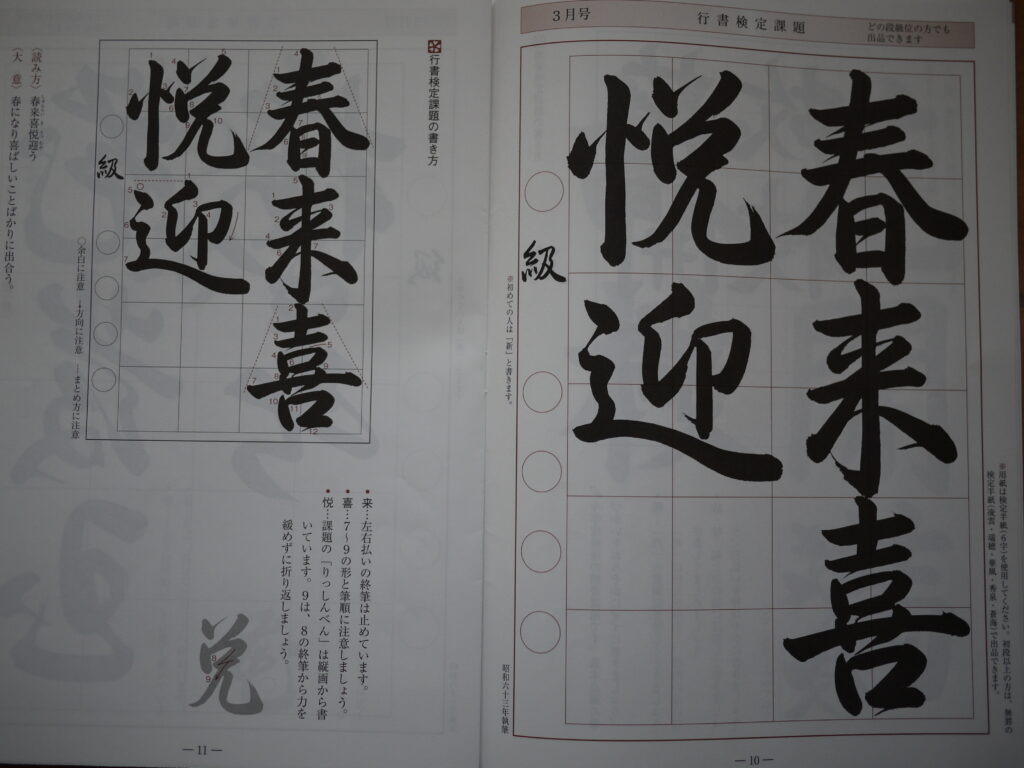 3月号
行書検定課題
どの段級位の方でも
出品できます
春来喜
悦迎
級
※初めての人は「新」と書きます。
昭和六十三年執筆
※用紙は検定半紙(6字)を使用してください。初段以上の方は、無罫の
10
行書検定課題の書き方
春来喜
悦迎
級
○余白に注意 →方向に注意 …まとめ方に注意
(読み方) 春来喜悦迎う
(大 意) 春になり喜ばしいことばかりに出合う。
• 来…左右払いの終筆は止めています。
• 喜…7〜9の形と筆順に注意しましょう。
• 悦…課題の「りっしんべん」は縦画から書
いています。9は、8の終筆から力を
緩めずに折り返しましょう。
兌
11